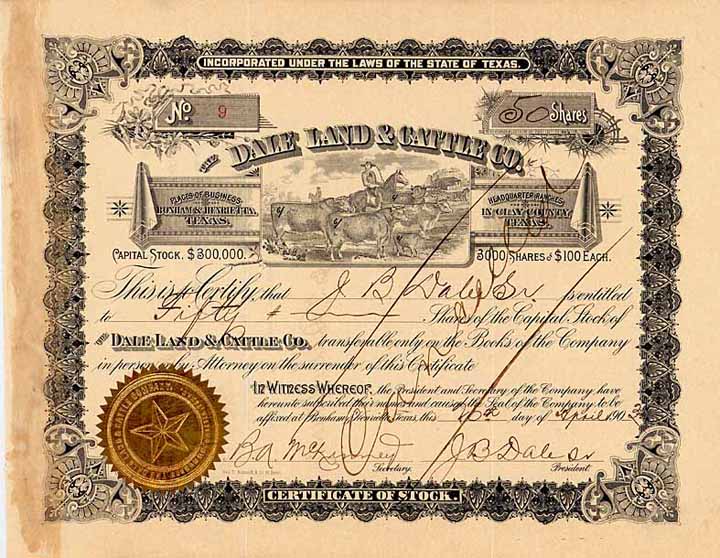 INCORPORATED UNDER THE LAWS OF THE STATE OF TEXAS.
No 9
50 Shares
THE DALE LAND & CATTLE CO.
PLACES OF BUSINESS
BONHAM & HENRIETTA,
TEXAS.
HEADQUARTER RANCHES
IN CLAY COUNTY,
TEXAS.
CAPITAL STOCK, $300,000.
3000 SHARES $100 EACH.
This is to Certify, that J B Dale Sr is entitled
to Fifty Shares of the Capital Stock of
THE DALE LAND & CATTLE CO. transferable only on the Books of the Company
in person or by Attorney on the surrender of this Certificate
IN WITNESS WHEREOF, the President and Secretary of the Company have
hereunto subscribed their names and caused the Seal of the Company to be
affixed at Bonham, Texas, this day of April 190
B.A. McKinney Secretary.
J B Dale Sr President.
CERTIFICATE OF STOCK.